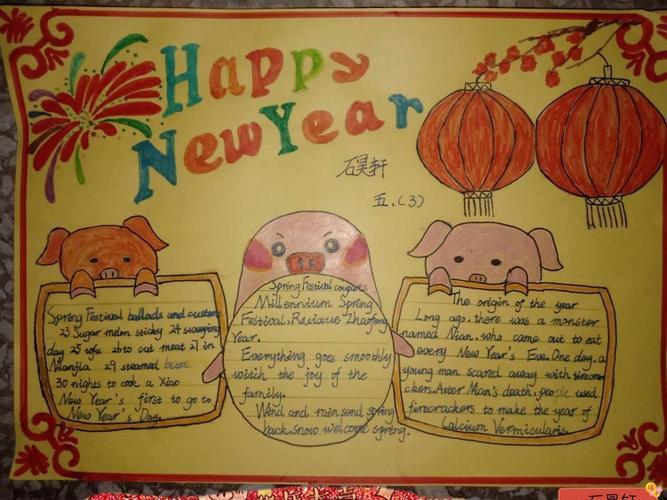 Happy
New Year
石昊轩
五.(3)
Spring Festival ballads and custom
23 Sugar melon sticky 24 sweeping
day 25 tofu 26 to cut meat 27 in
Nianjia 29 steamed
30 nights to cook a Xiao
New Year's first to go to
New Year's Day.
Spring Festival couplets
Millennium Spring
Festival, Ruixue Zhaofeng
Year.
Everything goes smoothly
with the joy of the
family.
Wind and rain send spring
back, snow welcome spring.
The origin of the year
Long ago, there was a monster
named Nian, who came out to eat
every New Year's Eve. One day, a
young man scared away with firecra
ckers. After Man's death, people used
firecrackers to make the year of
Calcium Vermicularis
石昊轩